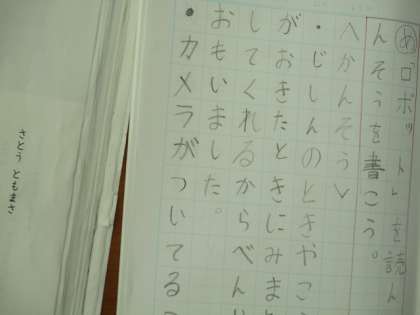 め ロボットを読ん
んそうを書こう。
<かんそう>
・じしんのときやこ
がおきたときにみま
してくれるからべん
おもいました。
・カメラがついてる
さとう ともまさ